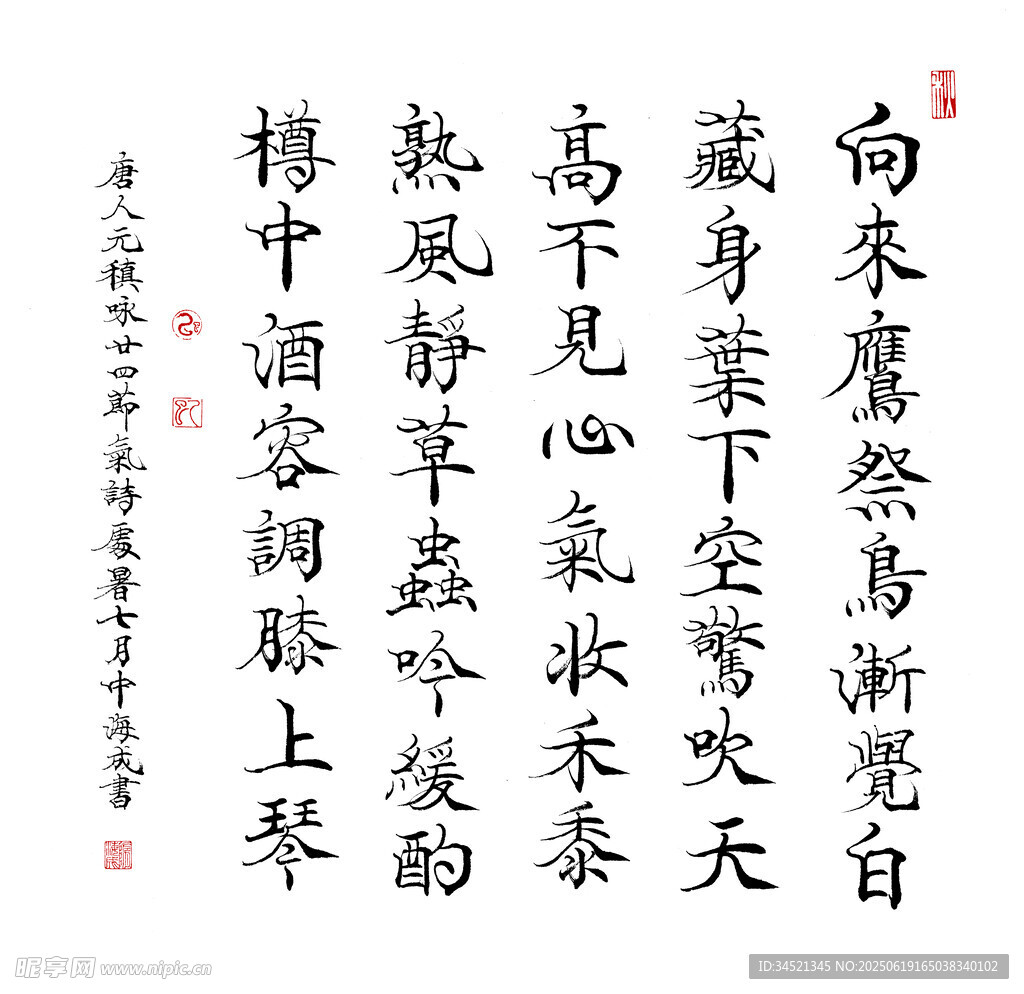 向來鷹祭鳥漸覺白
藏身葉下空驚吹天
高不見心氣收禾黍
熟風靜草蟲吟緩酌
樽中酒容調膝上琴
唐人元稹咏廿四節氣詩處暑七月中海成書
昵享网 www.nipic.cn
ID:34521345 NO:20250619165038340102